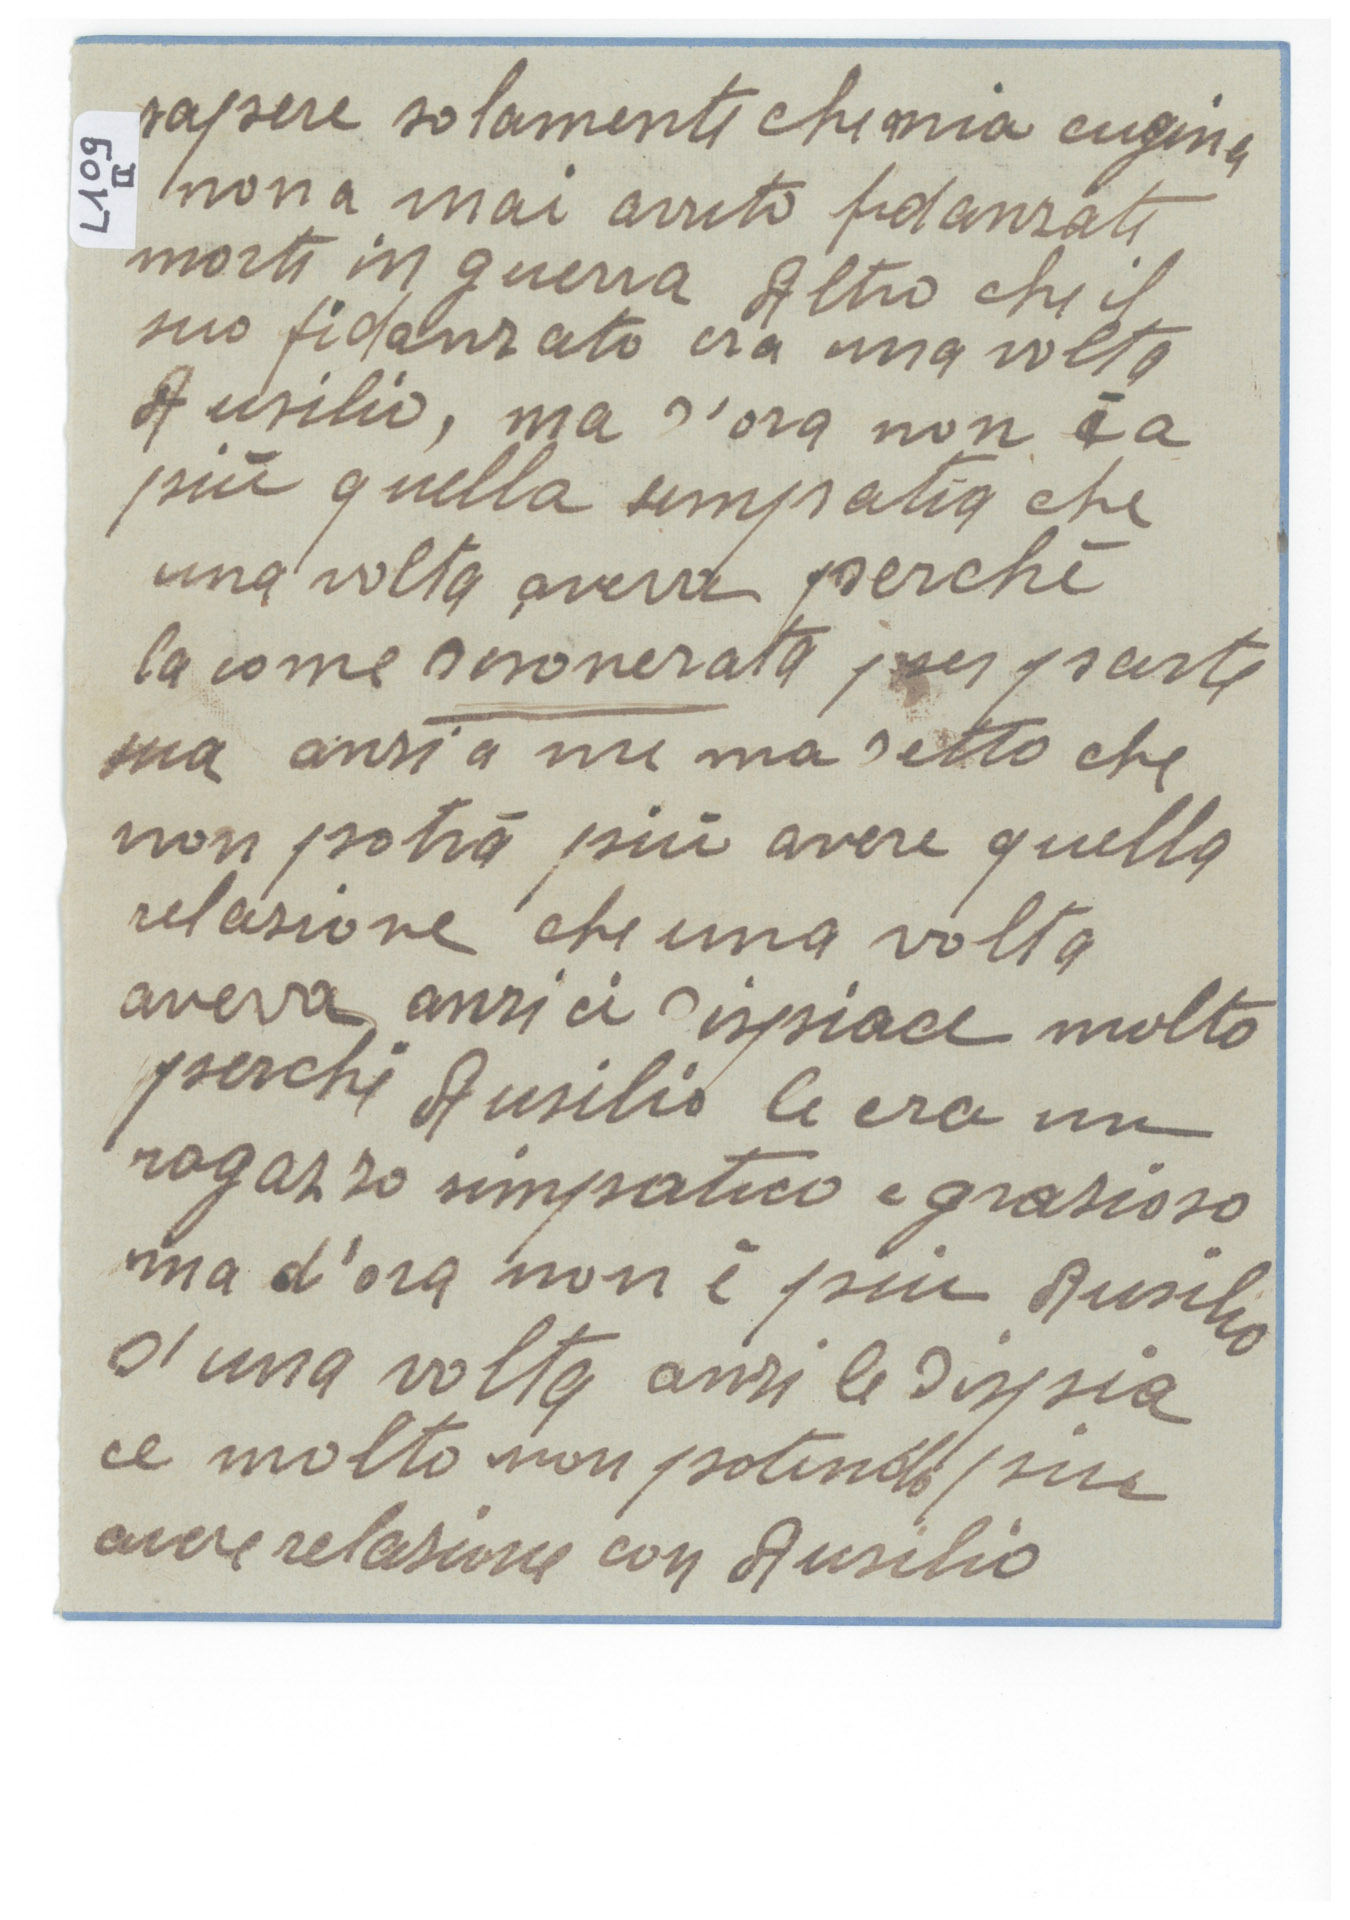 sapere solamente che mia cugina
non a mai avuto fidanzati
morti in guerra Altro che il
suo fidanzato era una volta
Ausilio, ma d'ora non è a
più quella simpatia che
una volta aveva perchè
la come disonerata per parte
sua anzi a me ma detto che
non potrà più avere quella
relasione che una volta
aveva anzi ci dispiace molto
perchè Ausilio le era un
ragazzo simpatico e grasioso
ma d'ora non è piu Ausilio
d'una volta anzi le dispia
ce molto non potendo piu
avere relasione con Ausilio
II
6017